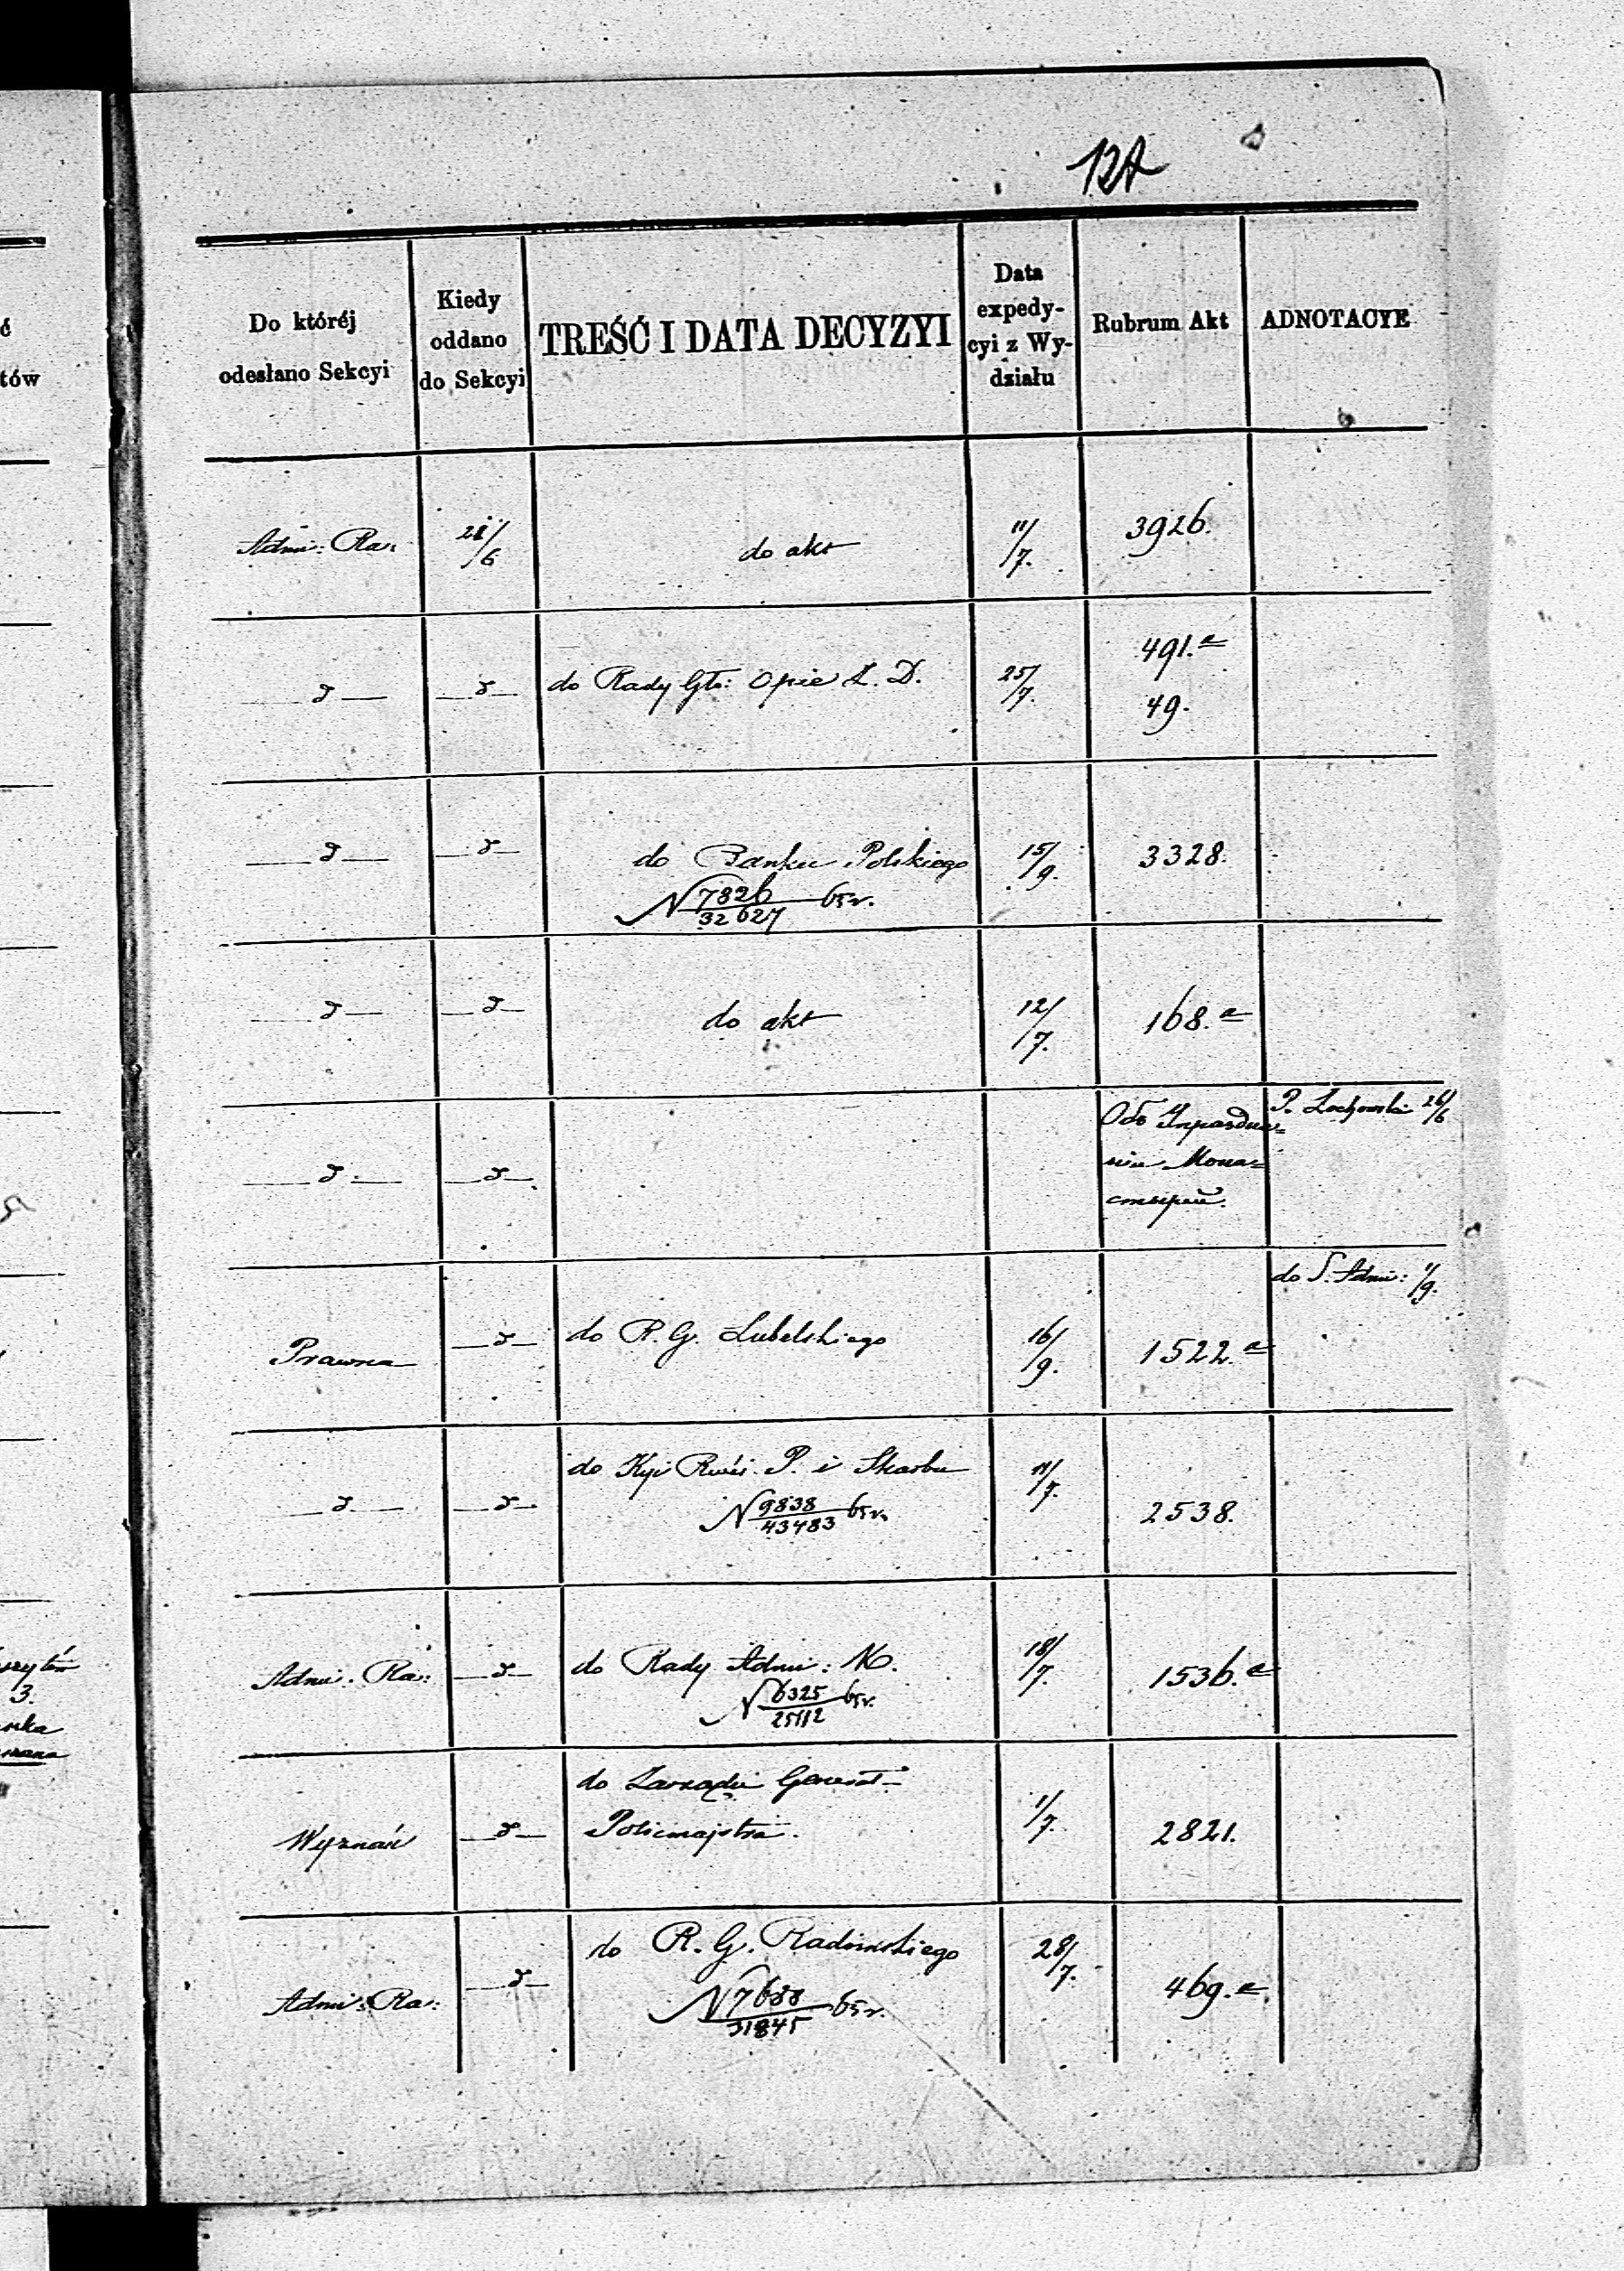 124
Do któréj
odesłano Sekcyi
Kiedy
oddano
do Sekcyi
TREŚĆ I DATA DECYZYI
Data
expedy-
cyi z Wy-
działu
Rubrum Akt
ADNOTACYE
Adm: Ra:
28/6
do akt
11/7.
3926.
d
d
do Rady Głó: Opie Z. D.
25/7.
491.a
49.
d
d
do Banku Polskiego
N 7826/32627 65 r.
15/9.
3328.
d
d
do akt
12/7.
168.a
d
d
Объ Упраздне=
нiи Мона=
стырей.
P. Lochowski 26/6
Prawna
d
do R. G. Lubelskiego
16/9.
1522.a
do S. Adm: 1/9.
d
d
do Kyi Rz P. i Skarbu
N 9838/43483 65 r.
11/7.
2538.
Adm. Ra:
d
do Rady Adm: K.
N 6325/25112 65 r.
18/7.
1536.a
Wyznań
d
do Zarządu Generał-
Policmajstra.
1/7.
2821.
Adm: Ra:
d
do R. G. Radomskiego
N 7688/31845 65 r.
28/7.
469.a